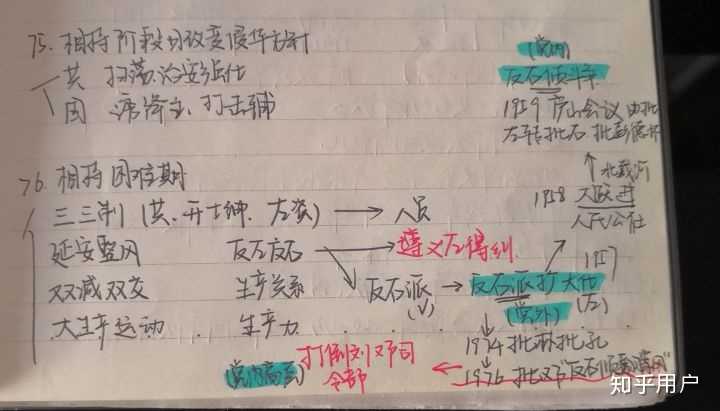 75. 相持阶段日改变侵华方针
共 扫荡治安强化
国 诱降主、打击辅
(党内)
反右倾斗争
1959 庐山会议 由批
左转批右 批彭德怀
↑ 北戴河
1958 大跃进
人民公社
76. 相持困难期
三三制 (共、开士绅、左资) → 人员
延安整风 反左反右 → 遵义左得纠
双减双交 生产关系 反右派 (√) → 反右派扩大化 1957
大生产运动 生产力 (党外) (左)
1974 批林批孔
1976 批邓"反右倾翻案风"
打倒刘邓司
令部
知乎用户